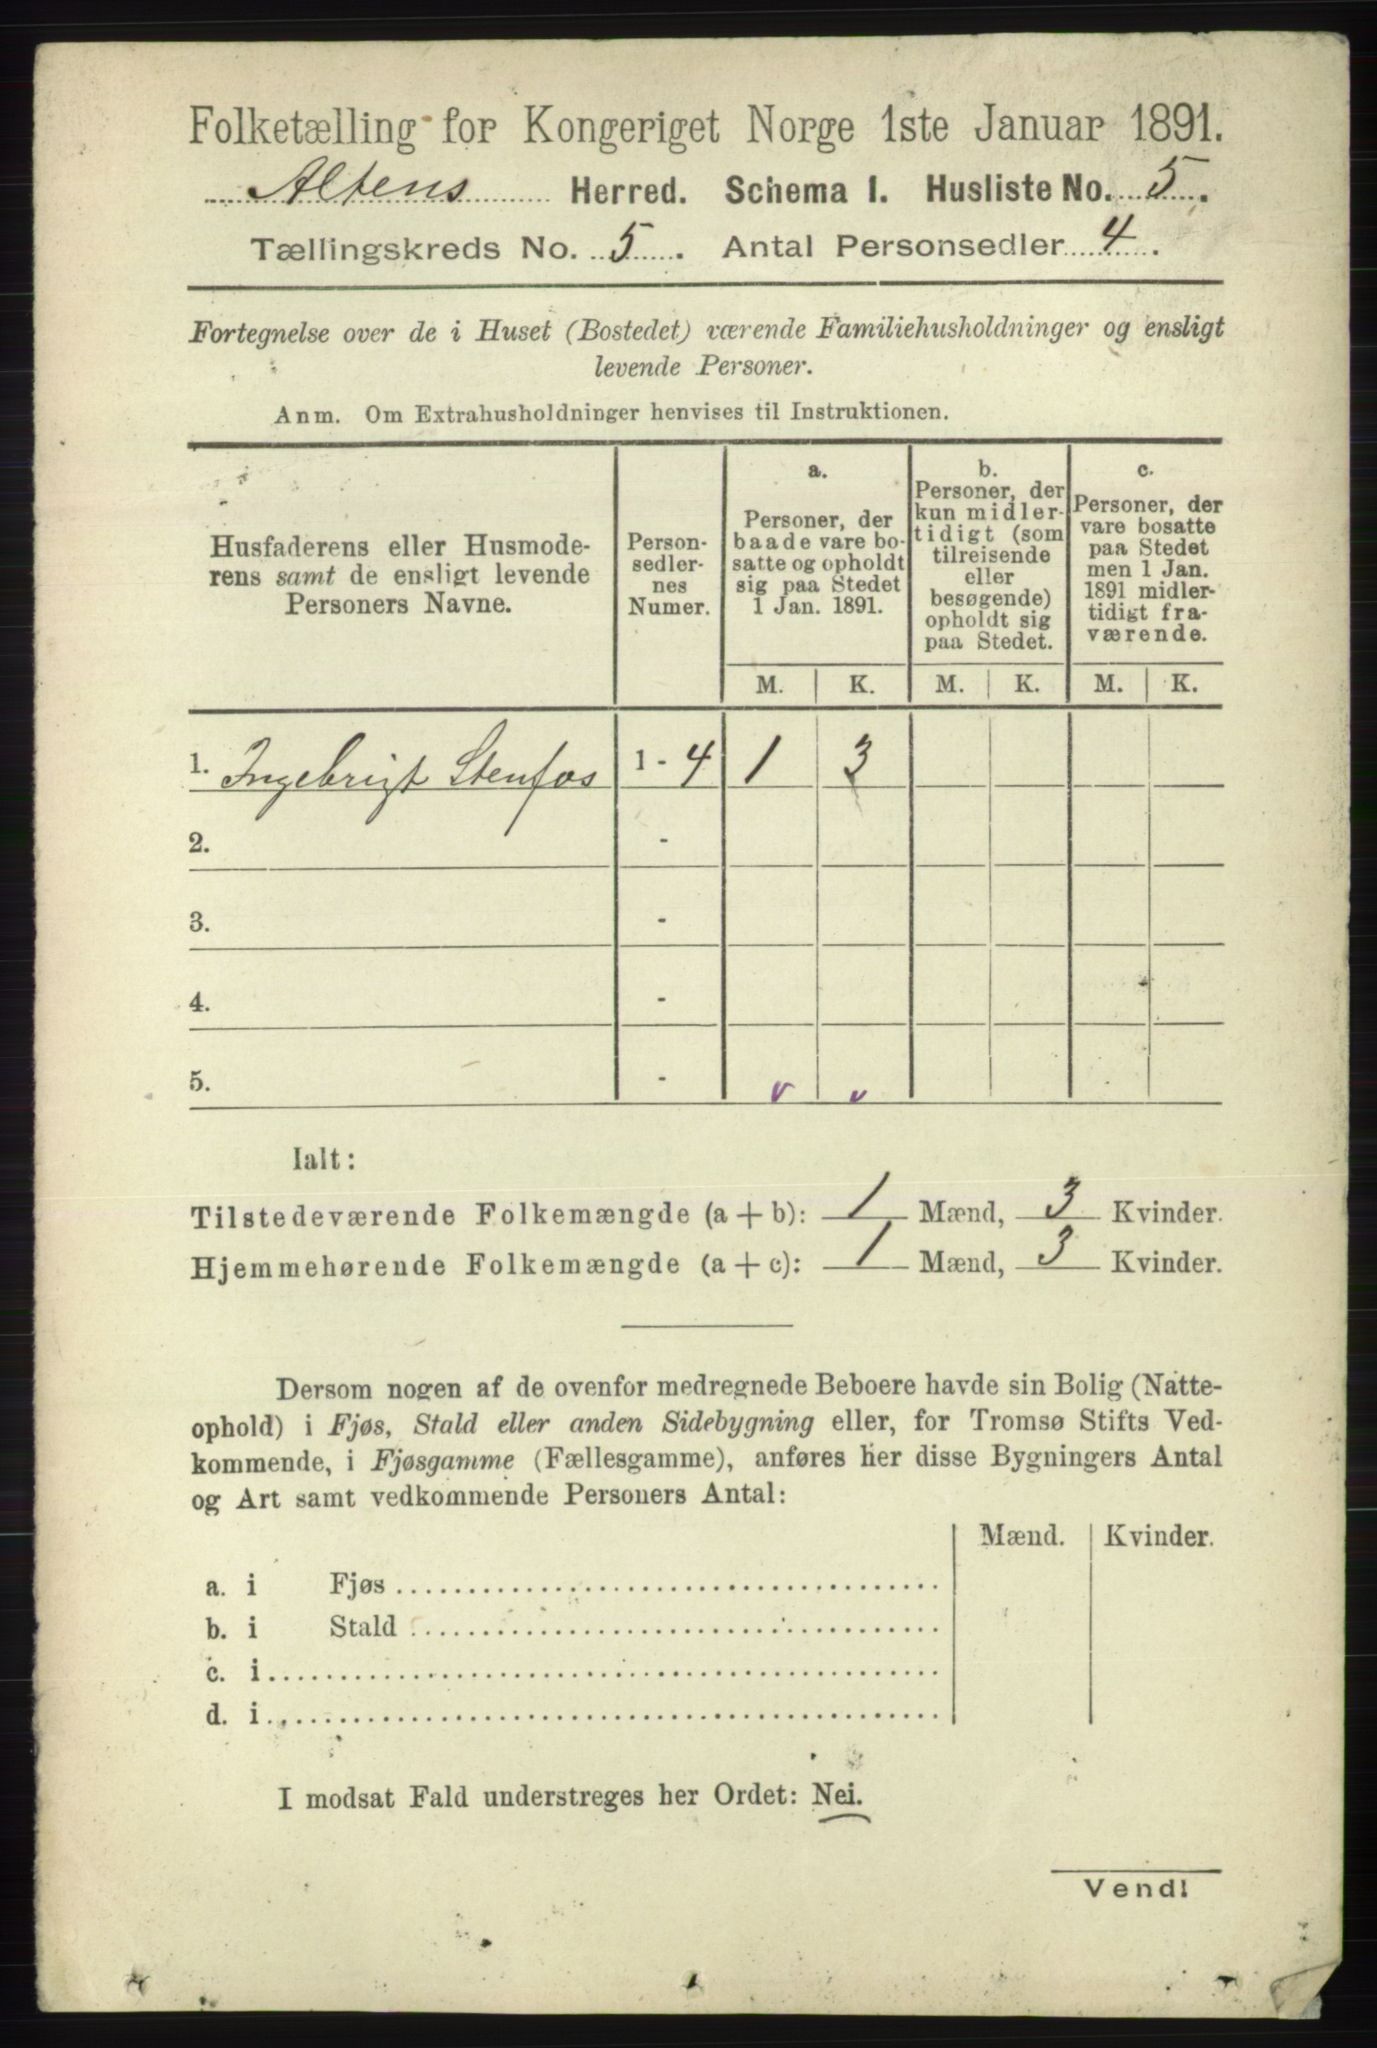 Folketælling for Kongeriget Norge 1ste Januar 1891.
Altens Herred. Schema I. Husliste No. 5.
Tællingskreds No. 5. Antal Personsedler 4.
Fortegnelse over de i Huset (Bostedet) værende Familiehusholdninger og ensligt
levende Personer.
Anm. Om Extrahusholdninger henvises til Instruktionen.
Husfaderens eller Husmode-
rens samt de ensligt levende
Personers Navne.
Person-
sedler-
nes
Numer.
a.
Personer, der
baade vare bo-
satte og opholdt
sig paa Stedet
1 Jan. 1891.
b.
Personer, der
kun midler-
tidigt (som
tilreisende
eller
besøgende)
opholdt sig
paa Stedet.
c.
Personer, der
vare bosatte
paa Stedet
men 1 Jan.
1891 midler-
tidigt fra-
værende.
M. K. M. K. M. K.
1. Ingebrigt Stenfos 1 - 4 1 3
2. -
3. -
4. -
5. - v v
Ialt:
Tilstedeværende Folkemængde (a + b): 1 Mænd, 3 Kvinder.
Hjemmehørende Folkemængde (a + c): 1 Mænd, 3 Kvinder.
Dersom nogen af de ovenfor medregnede Beboere havde sin Bolig (Natte-
ophold) i Fjøs, Stald eller anden Sidebygning eller, for Tromsø Stifts Ved-
kommende, i Fjøsgamme (Fællesgamme), anføres her disse Bygningers Antal
og Art samt vedkommende Personers Antal:
Mænd. Kvinder.
a. i Fjøs
b. i Stald
c. i
d. i
I modsat Fald understreges her Ordet: Nei.
Vend!